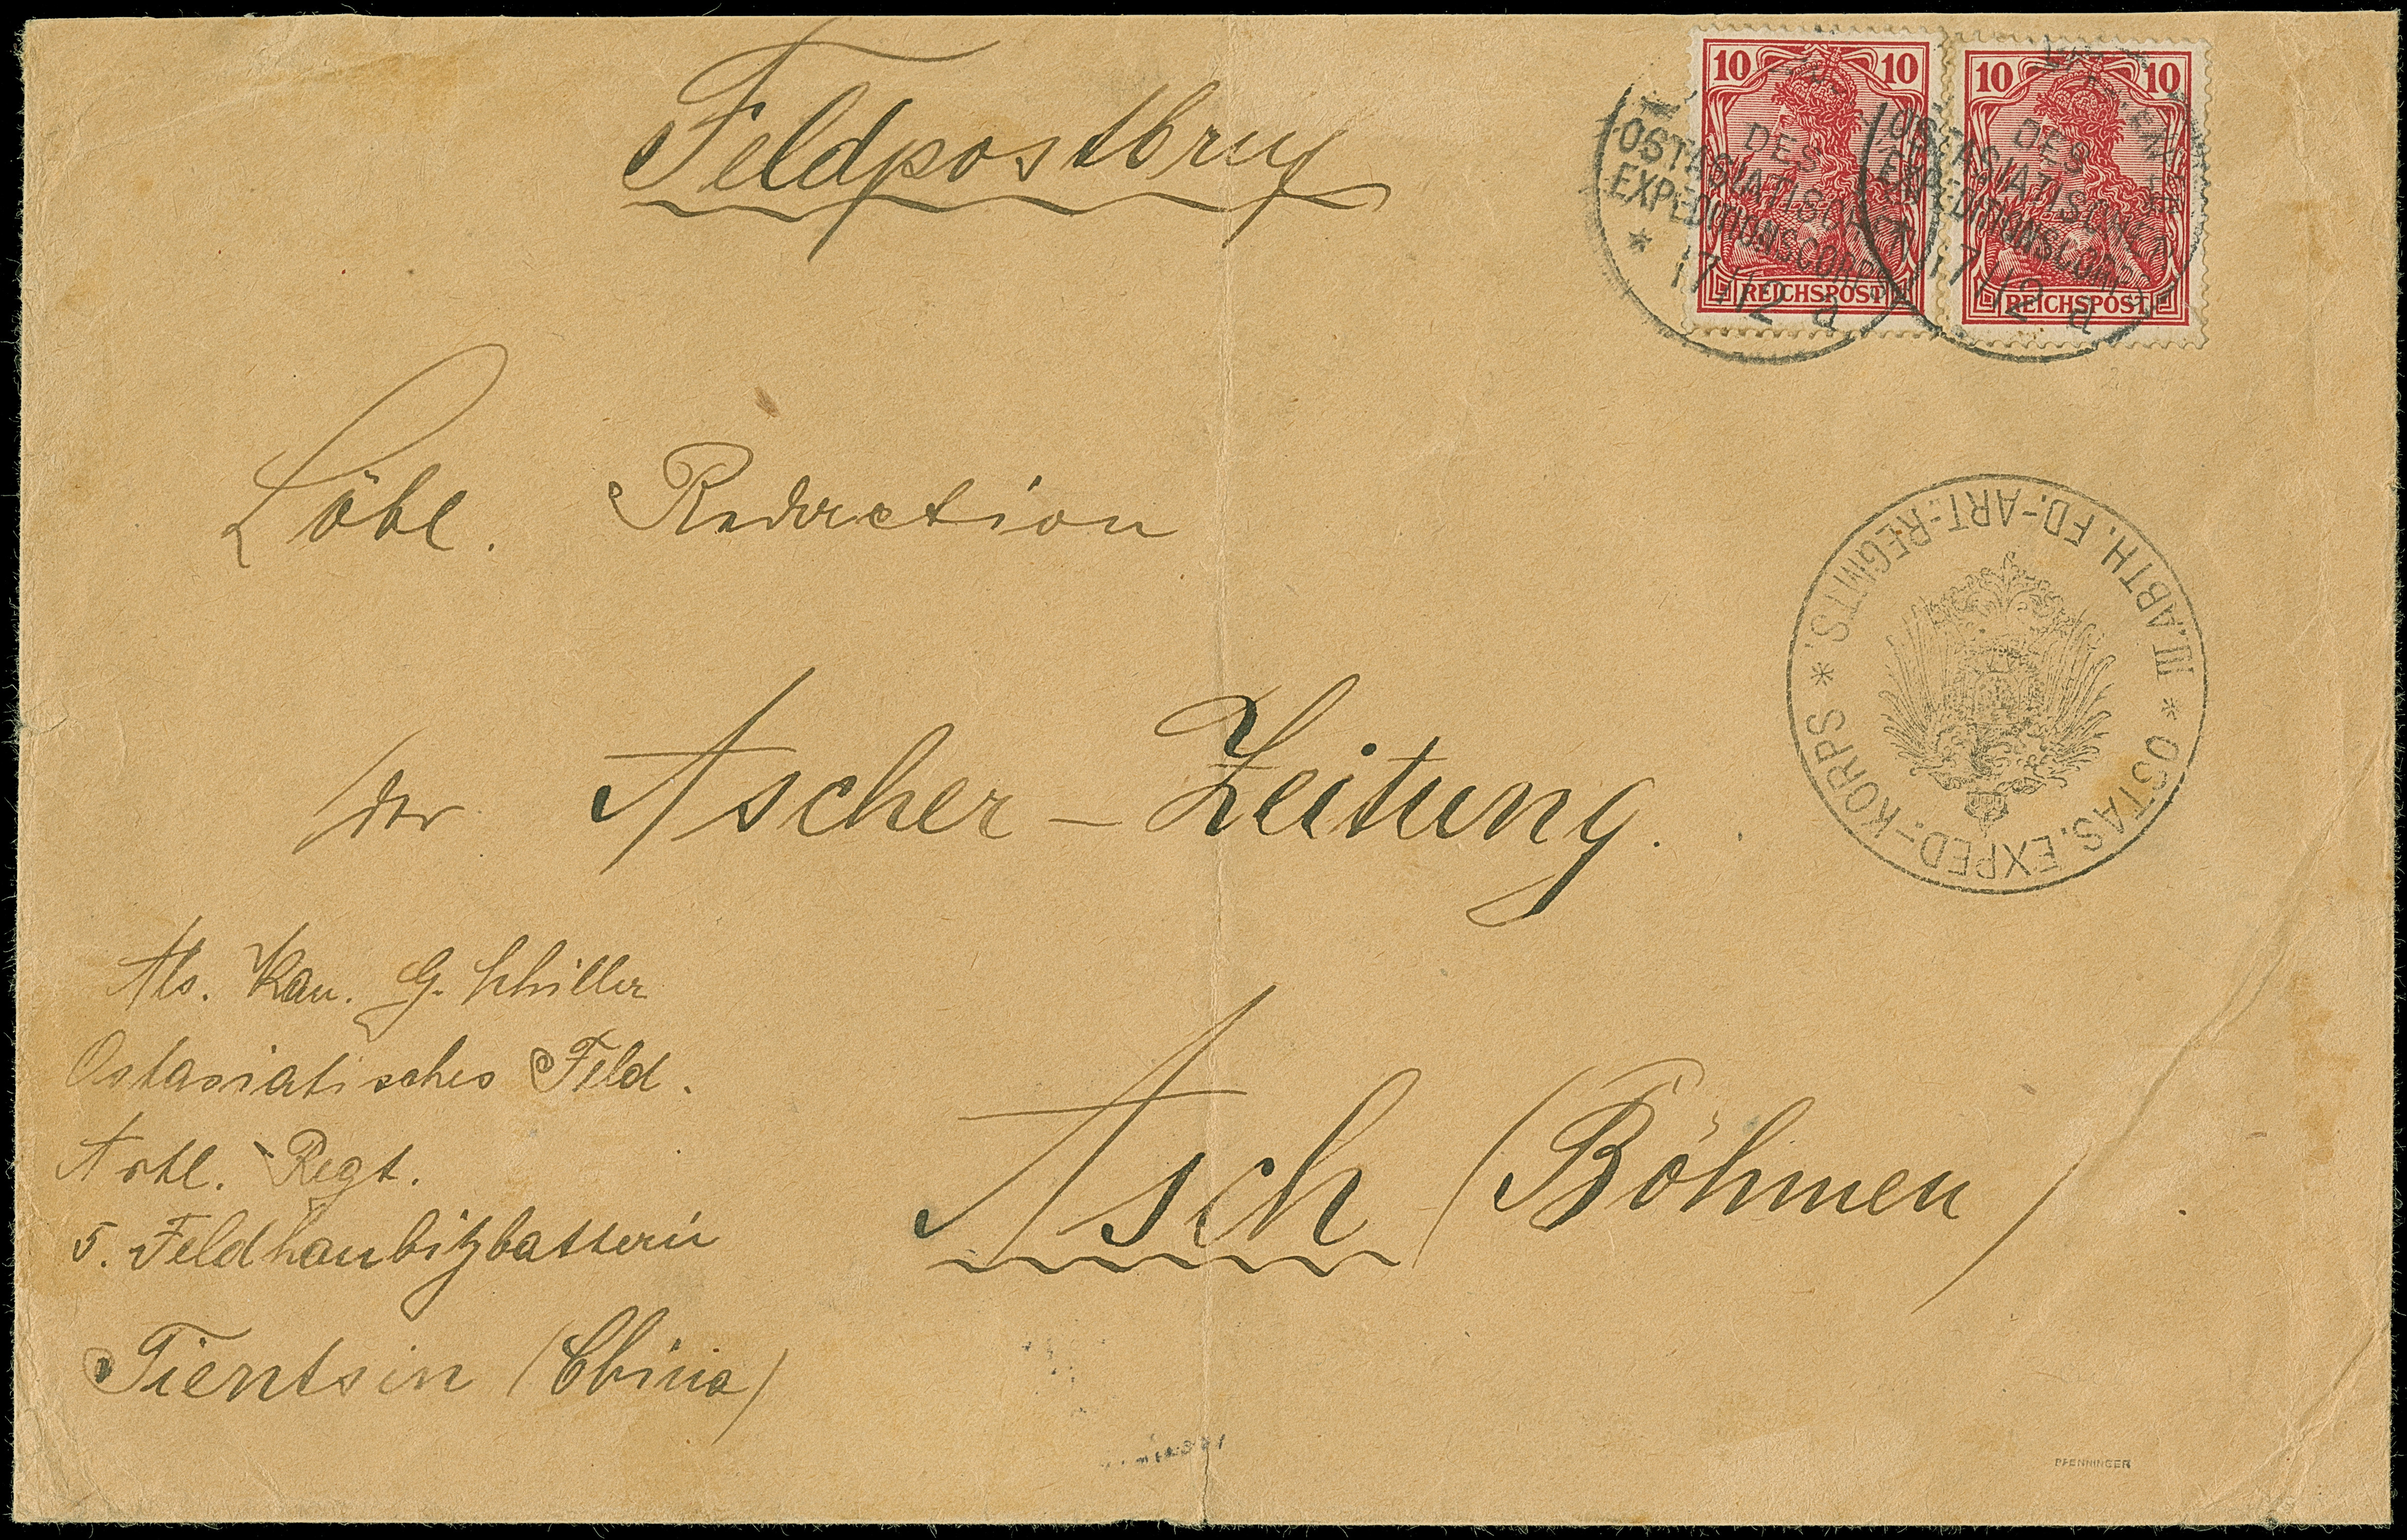 Feldpostbrief
10 10
REICHSPOST
10 10
REICHSPOST
DES
OSTASIATISCHEN
EXPEDITIONSCORPS
* 17/12 a
DES
OSTASIATISCHEN
EXPEDITIONSCORPS
17/12 a
Löbl. Redaction
der Ascher-Zeitung.
III. ABTH. FD.-ART.-REGMTS. * OSTAS. EXPED.-KORPS *
Asch (Böhmen)
Abs. Kan. G. Schiller
Ostasiatisches Feld.
Artl. Regt.
5. Feldhaubitzbatterie
Tientsin (China)
PFENNINGER